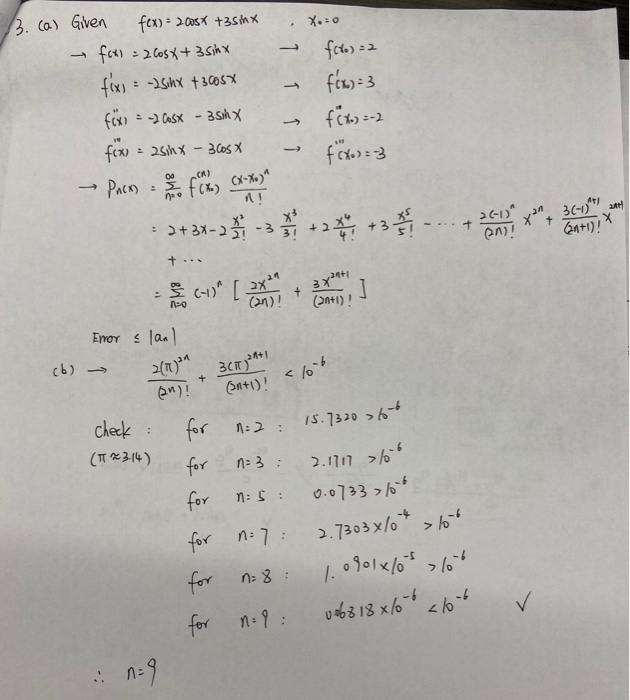 3. (a) Given f(x) = 2cosx + 3sinx , x₀ = 0
→ f(x) = 2cosx + 3sinx → f(x₀) = 2
f'(x) = -2sinx + 3cosx → f'(x₀) = 3
f''(x) = -2cosx - 3sinx → f''(x₀) = -2
f'''(x) = 2sinx - 3cosx → f'''(x₀) = -3
→ Pn(x) = ∑_{n=0}^{∞} f^{(n)}(x₀) (x-x₀)^n / n!
= 2 + 3x - 2 x²/2! - 3 x³/3! + 2 x⁴/4! + 3 x⁵/5! - ⋯ + 2(-1)^n/(2n)! x^{2n} + 3(-1)^{n+1}/(2n+1)! x^{2n+1}
+ ⋯
= ∑_{n=0}^{∞} (-1)^n [ 2x^{2n}/(2n)! + 3x^{2n+1}/(2n+1)! ]
Error ≤ |an|
(b) → 2(π)^{2n}/(2n)! + 3(π)^{2n+1}/(2n+1)! < 10^{-6}
Check : for n=2 : 15.7320 > 10^{-6}
(π≈3.14) for n=3 : 2.1717 > 10^{-6}
for n=5 : 0.0733 > 10^{-6}
for n=7 : 2.7303×10^{-4} > 10^{-6}
for n=8 : 1.0901×10^{-5} > 10^{-6}
for n=9 : 0.6818×10^{-6} < 10^{-6} ✓
∴ n=9